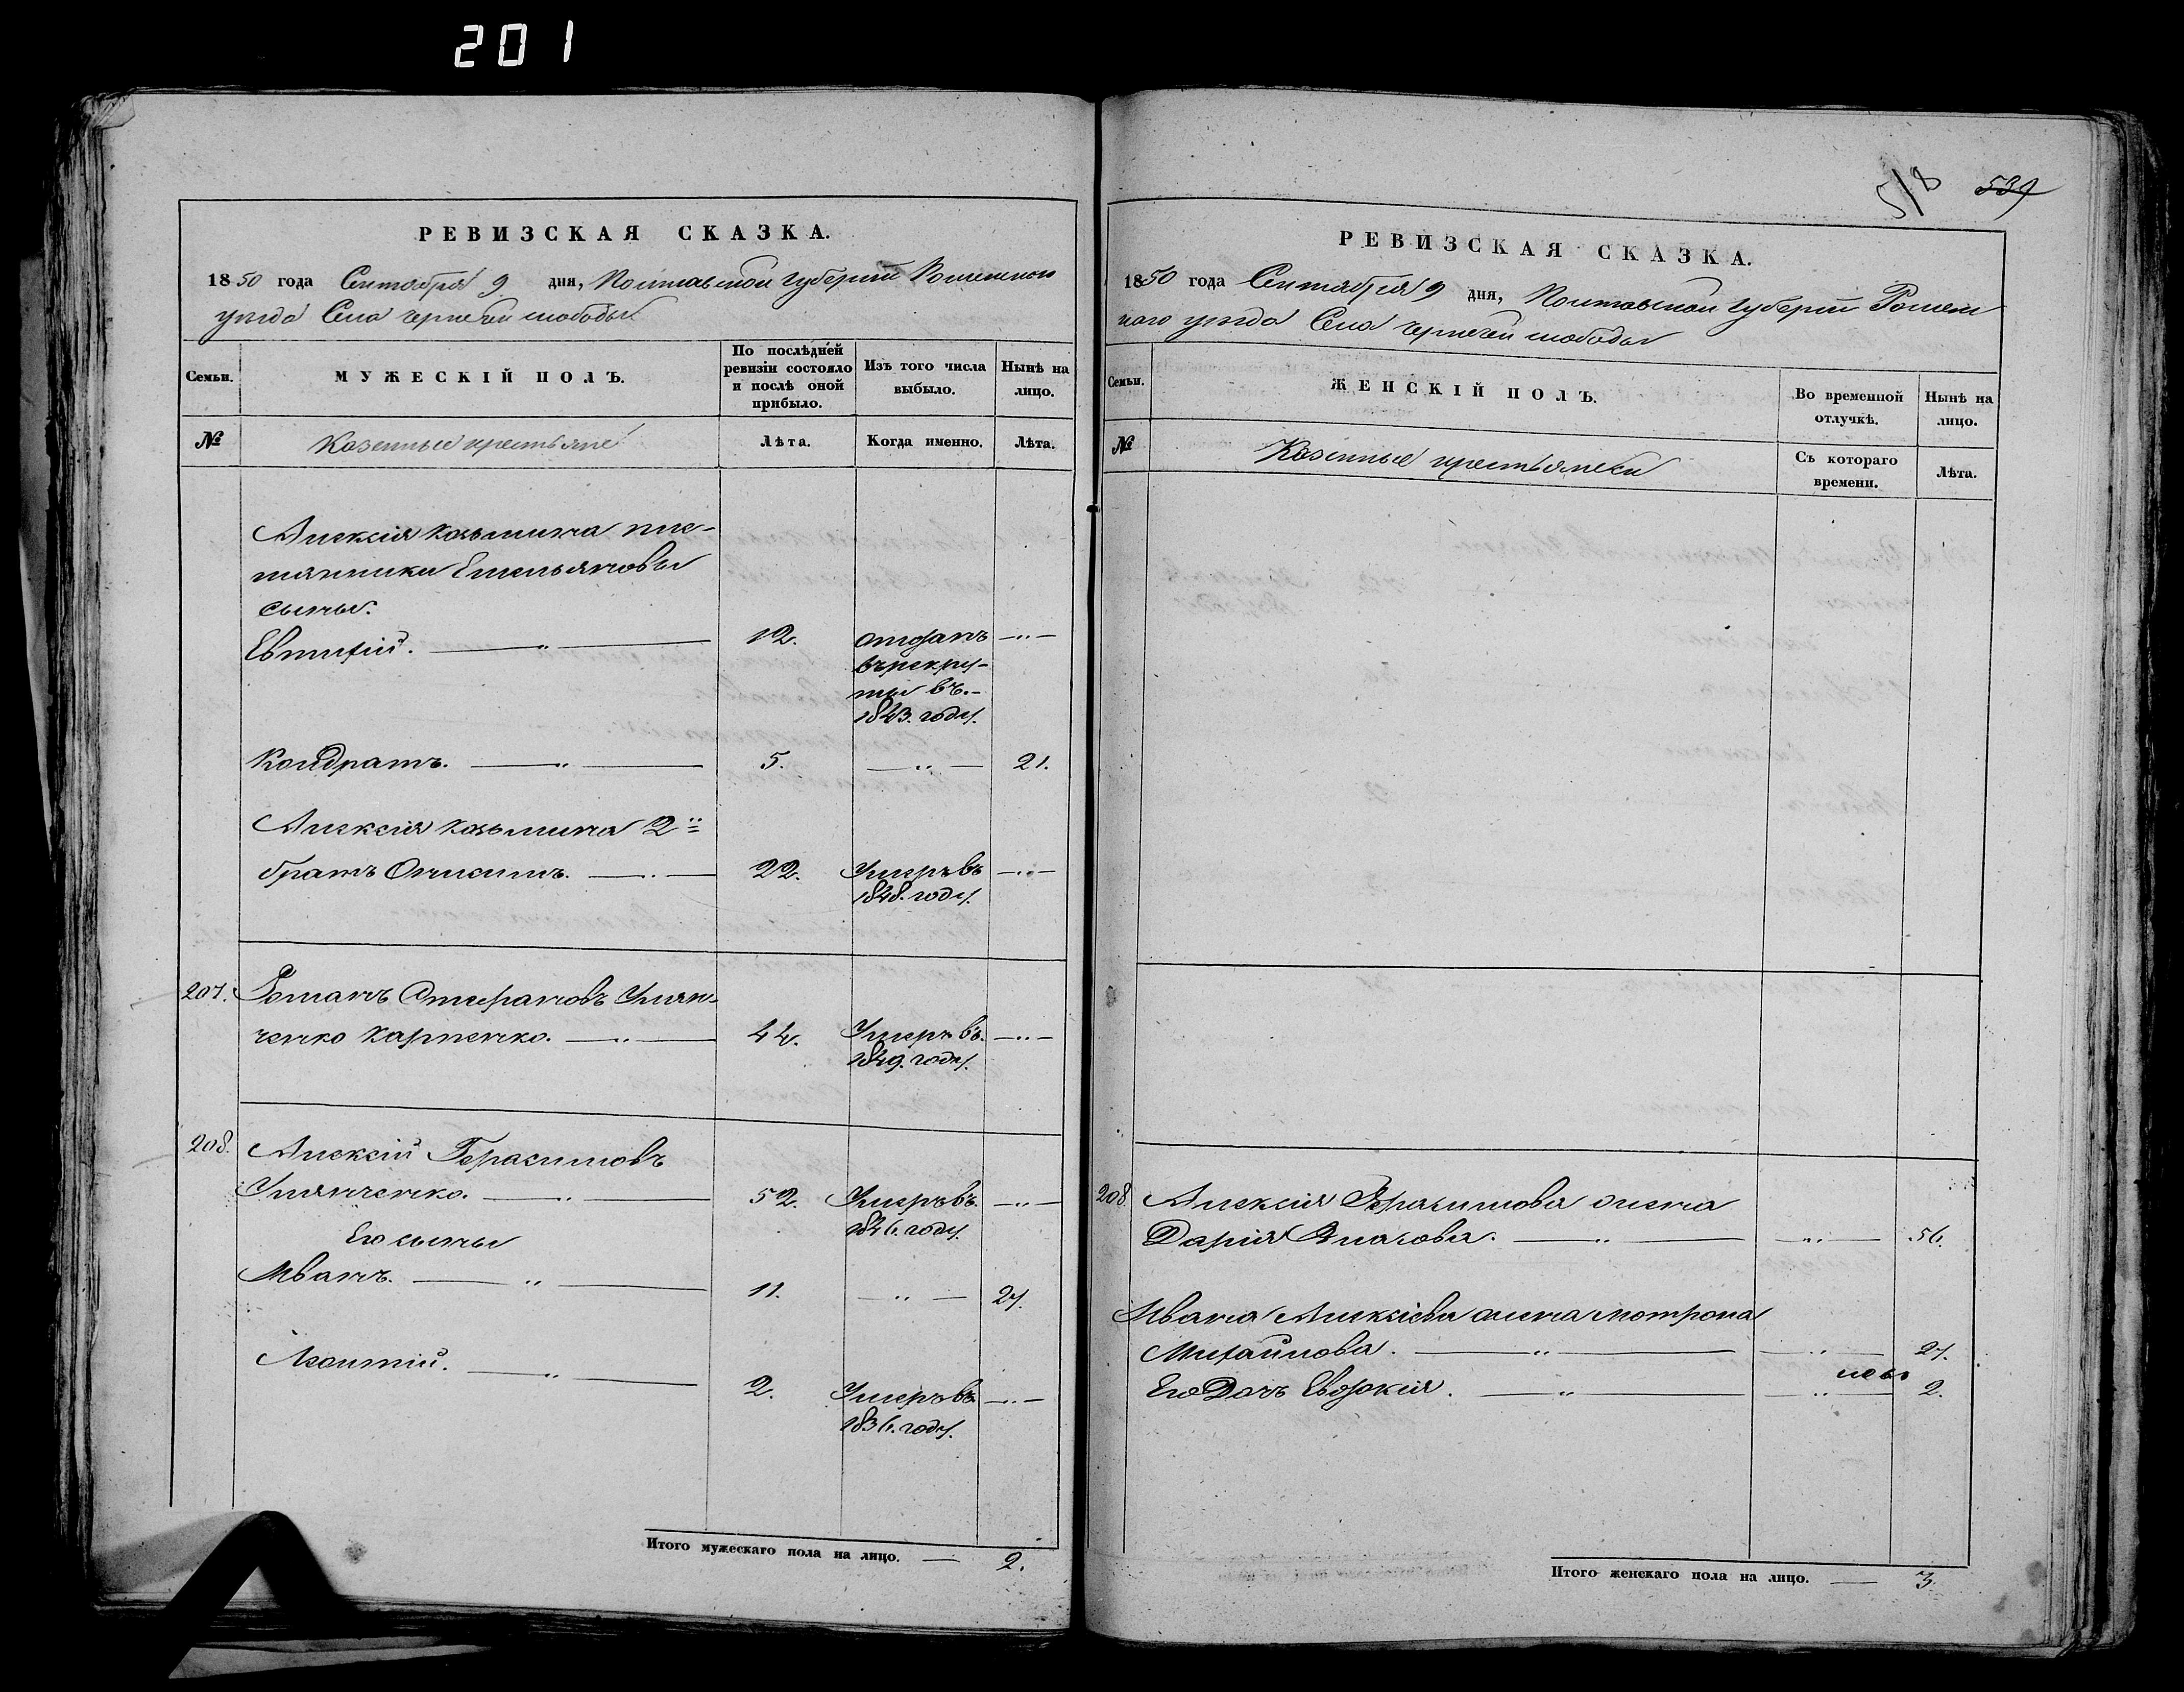 201
РЕВИЗСКАЯ СКАЗКА.
1850 года Сентября 9 дня, Полтавской губерніи Роменскаго
уезда Села Чернечей слободы
Семьи.
МУЖЕСКІЙ ПОЛЪ.
По послѣдней ревизіи состояло и послѣ оной прибыло.
Изъ того числа выбыло.
Нынѣ на лицо.
№
Казенные крестьяне
Лѣта.
Когда именно.
Лѣта.
Алексія Козьмина пле-
мянники Емельяновы
сыны.
Евтихій. — „ — 12. отданъ —„—
въ рекру-
ты въ.-
1843. году.
Кондратъ. — „ — 5. — „ — 21.
Алексія Козьмина 2й
братъ Онисимъ. — „ — 22. Умеръ въ —„—
1848. году.
207. Романъ Стефановъ
ченко Карпенко. — „ — 44. Умеръ въ. —„—
1849. году.
208. Алексій Герасимовъ
— „ — 52. Умеръ въ. —„—
1846. году.
Его сыны
Иванъ. — „ — 11. — „ — 27.
Леонтій. — „ — 2. Умеръ въ —„—
1836. году.
Итого мужескаго пола на лицо. — 2.
518 539
РЕВИЗСКАЯ СКАЗКА.
1850 года Сентября 9 дня, Полтавской губерніи Ромен
скаго уезда Села Чернечей слободы
Семьи.
ЖЕНСКІЙ ПОЛЪ.
Во временной отлучкѣ.
Нынѣ на лицо.
№
Казенные крестьянки
Съ котораго времени.
Лѣта.
208. Алексія Герасимова жена
Дарія Власова. — „ — — „ — 56.
Ивана Алексіева жена Мотрона
Михайлова. — „ — — „ — 27.
Его Дочь Евдокія. — „ — — „ — 2.
Итого женскаго пола на лицо. — 3.